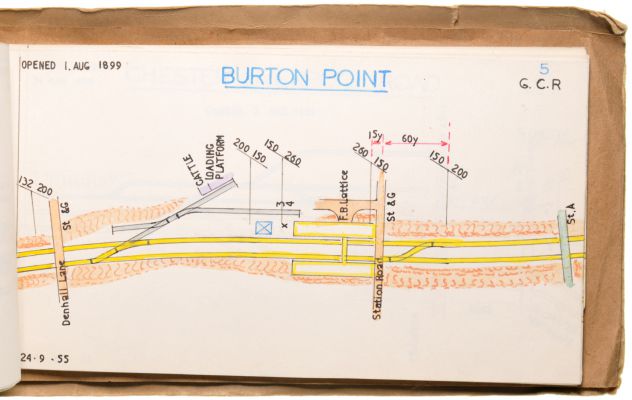 OPENED 1. AUG 1899
BURTON POINT
5
G. C. R
15y
60y
CATTLE
LOADING
PLATFORM
200
150
150
260
260
150
150
200
132
200
St &G
3
4
x
F.B. Lattice
St &G
St. A
Denhall Lane
Station Road
24 · 9 · 55